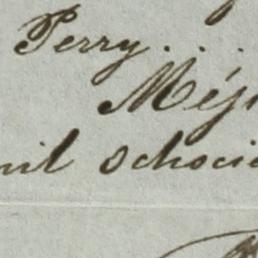 Perry . . .
Méj
nil Schocie